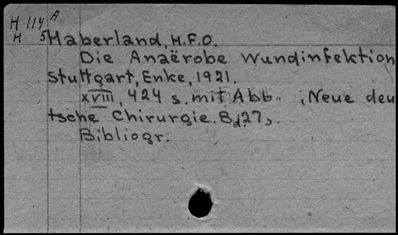 H 114 A
H 5 Haberland, H.F.O.
Die Anaërobe Wundinfektion
Stuttgart, Enke, 1921.
XVIII, 424 s. mit Abb. , Neue deu
tsche Chirurgie. Bd.27,
Bibliogr.